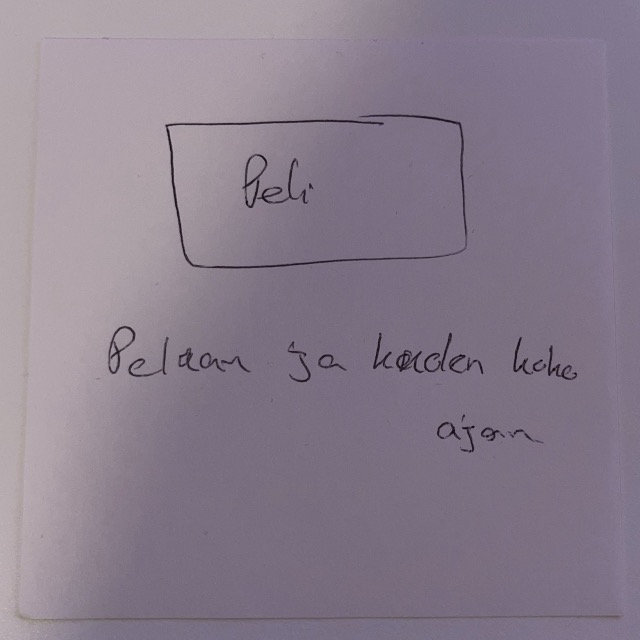 Peli
Pelaan ja kuden koko
ajan